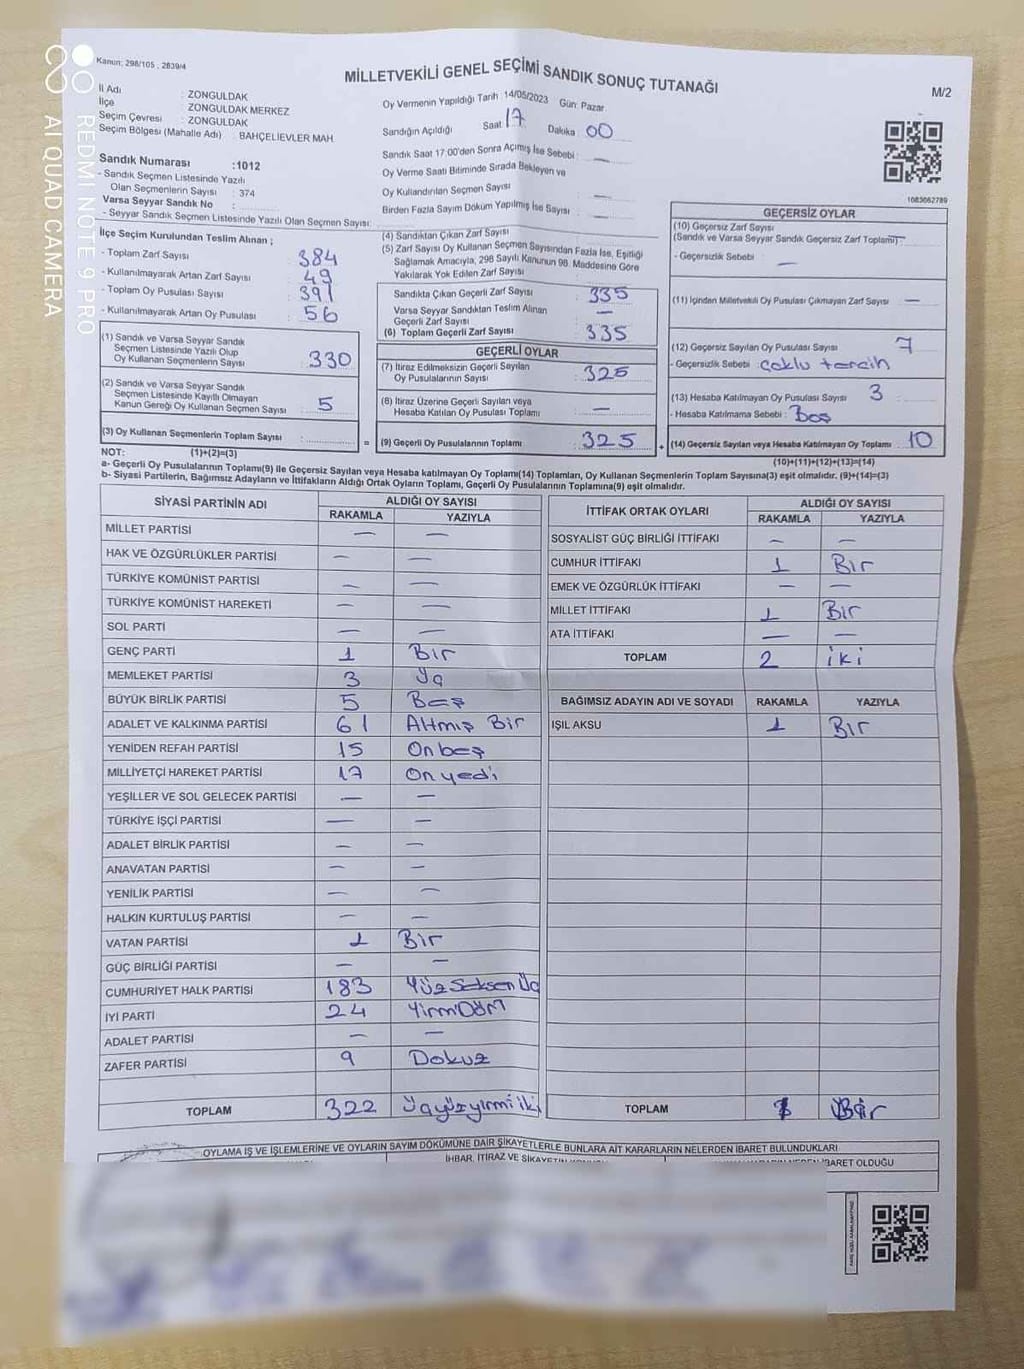 REDMI NOTE 9 PRO
AI QUAD CAMERA
Kanun: 298/105 , 2839/4
MİLLETVEKİLİ GENEL SEÇİMİ SANDIK SONUÇ TUTANAĞI
M/2
İl Adı : ZONGULDAK
İlçe : ZONGULDAK MERKEZ
Seçim Çevresi : ZONGULDAK
Seçim Bölgesi (Mahalle Adı) : BAHÇELİEVLER MAH
Sandık Numarası :1012
- Sandık Seçmen Listesinde Yazılı
Olan Seçmenlerin Sayısı : 374
Varsa Seyyar Sandık No :
- Seyyar Sandık Seçmen Listesinde Yazılı Olan Seçmen Sayısı:
Oy Vermenin Yapıldığı Tarih 14/05/2023 Gün: Pazar
Sandığın Açıldığı Saat 17 Dakika 00
Sandık Saat 17:00'den Sonra Açmış İse Sebebi: —
Oy Verme Saati Bitiminde Sırada Bekleyen ve
Oy Kullandırılan Seçmen Sayısı —
Birden Fazla Sayım Döküm Yapılmış İse Sayısı —
1083662789
İlçe Seçim Kurulundan Teslim Alınan ;
- Toplam Zarf Sayısı 384
- Kullanılmayarak Artan Zarf Sayısı 49
- Toplam Oy Pusulası Sayısı 391
- Kullanılmayarak Artan Oy Pusulası 56
(1) Sandık ve Varsa Seyyar Sandık
Seçmen Listesinde Yazılı Olup
Oy Kullanan Seçmenlerin Sayısı 330
(2) Sandık ve Varsa Seyyar Sandık
Seçmen Listesinde Kayıtlı Olmayan
Kanun Gereği Oy Kullanan Seçmen Sayısı 5
(3) Oy Kullanan Seçmenlerin Toplam Sayısı :
(4) Sandıktan Çıkan Zarf Sayısı
(5) Zarf Sayısı Oy Kullanan Seçmen Sayısından Fazla İse, Eşitliği
Sağlamak Amacıyla, 298 Sayılı Kanunun 98. Maddesine Göre
Yakılarak Yok Edilen Zarf Sayısı
Sandıkta Çıkan Geçerli Zarf Sayısı 335
Varsa Seyyar Sandıktan Teslim Alınan
Geçerli Zarf Sayısı —
(6) Toplam Geçerli Zarf Sayısı 335
GEÇERLİ OYLAR
(7) İtiraz Edilmeksizin Geçerli Sayılan
Oy Pusulalarının Sayısı 325
(8) İtiraz Üzerine Geçerli Sayılan veya
Hesaba Katılan Oy Pusulası Toplamı —
= (9) Geçerli Oy Pusulalarının Toplamı 325
GEÇERSİZ OYLAR
(10) Geçersiz Zarf Sayısı
(Sandık ve Varsa Seyyar Sandık Geçersiz Zarf Toplamı) —
- Geçersizlik Sebebi —
(11) İçinden Milletvekili Oy Pusulası Çıkmayan Zarf Sayısı —
(12) Geçersiz Sayılan Oy Pusulası Sayısı 7
- Geçersizlik Sebebi çoklu tercih
(13) Hesaba Katılmayan Oy Pusulası Sayısı 3
- Hesaba Katılmama Sebebi : Boş
+ (14) Geçersiz Sayılan veya Hesaba Katılmayan Oy Toplamı 10
NOT: (1)+(2)=(3)
(10)+(11)+(12)+(13)=(14)
a- Geçerli Oy Pusulalarının Toplamı(9) ile Geçersiz Sayılan veya Hesaba katılmayan Oy Toplamı(14) Toplamları, Oy Kullanan Seçmenlerin Toplam Sayısına(3) eşit olmalıdır. (9)+(14)=(3)
b- Siyasi Partilerin, Bağımsız Adayların ve İttifakların Aldığı Ortak Oyların Toplamı, Geçerli Oy Pusulalarının Toplamına(9) eşit olmalıdır.
SİYASİ PARTİNİN ADI ALDIĞI OY SAYISI
RAKAMLA YAZIYLA
MİLLET PARTİSİ — —
HAK VE ÖZGÜRLÜKLER PARTİSİ — —
TÜRKİYE KOMÜNİST PARTİSİ — —
TÜRKİYE KOMÜNİST HAREKETİ — —
SOL PARTİ — —
GENÇ PARTİ 1 Bir
MEMLEKET PARTİSİ 3 Üç
BÜYÜK BİRLİK PARTİSİ 5 Beş
ADALET VE KALKINMA PARTİSİ 61 Altmış Bir
YENİDEN REFAH PARTİSİ 15 On beş
MİLLİYETÇİ HAREKET PARTİSİ 17 On yedi
YEŞİLLER VE SOL GELECEK PARTİSİ — —
TÜRKİYE İŞÇİ PARTİSİ — —
ADALET BİRLİK PARTİSİ — —
ANAVATAN PARTİSİ — —
YENİLİK PARTİSİ — —
HALKIN KURTULUŞ PARTİSİ — —
VATAN PARTİSİ 1 Bir
GÜÇ BİRLİĞİ PARTİSİ — —
CUMHURİYET HALK PARTİSİ 183 Yüz Seksen Üç
İYİ PARTİ 24 YirmiDört
ADALET PARTİSİ — —
ZAFER PARTİSİ 9 Dokuz
TOPLAM 322 Üçyüzyirmi iki
İTTİFAK ORTAK OYLARI ALDIĞI OY SAYISI
RAKAMLA YAZIYLA
SOSYALİST GÜÇ BİRLİĞİ İTTİFAKI — —
CUMHUR İTTİFAKI 1 Bir
EMEK VE ÖZGÜRLÜK İTTİFAKI — —
MİLLET İTTİFAKI 1 Bir
ATA İTTİFAKI — —
TOPLAM 2 iki
BAĞIMSIZ ADAYIN ADI VE SOYADI RAKAMLA YAZIYLA
IŞIL AKSU 1 Bir
TOPLAM 1 Bir
OYLAMA İŞ VE İŞLEMLERİNE VE OYLARIN SAYIM DÖKÜMÜNE DAİR ŞİKAYETLERLE BUNLARA AİT KARARLARIN NELERDEN İBARET BULUNDUKLARI
İHBAR, İTİRAZ VE ŞİKAYETİN
İBARET OLDUĞU